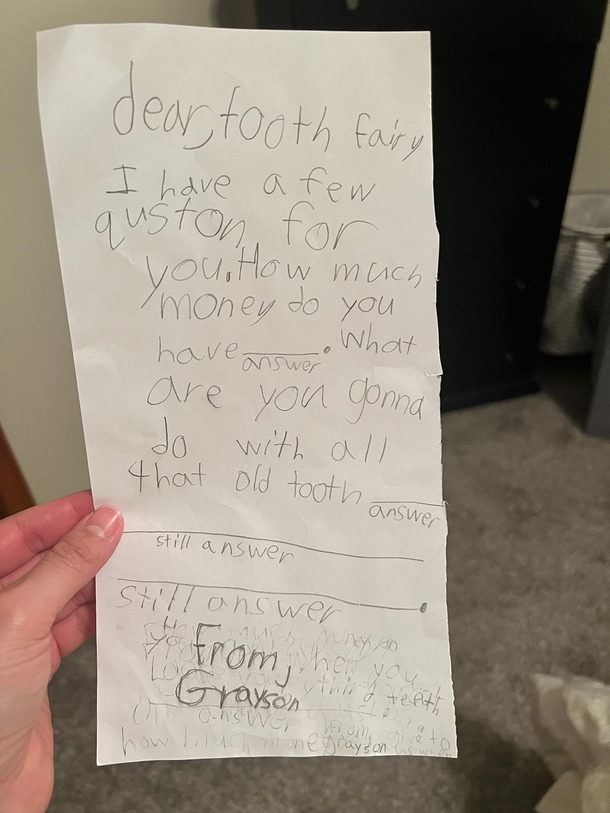 dear, tooth fairy
I have a few
quston for
you. How much
money do you
have ______. What
answer
are you gonna
do with all
that old tooth ______
answer
still answer
still answer .
From,
when you
Grayson
third teeth
answer
From
how much Grayson